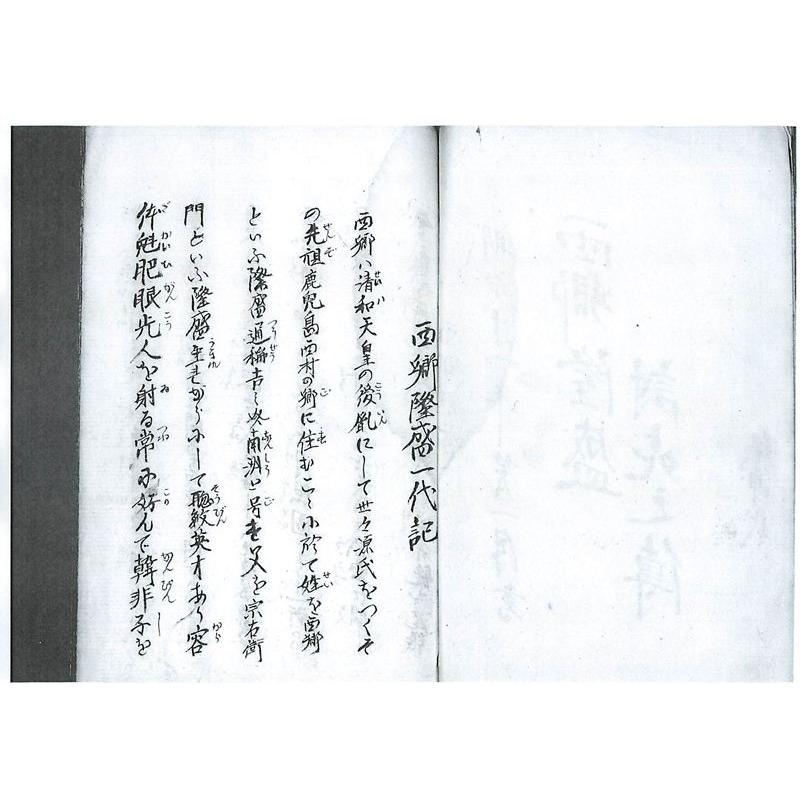 西郷隆盛一代記
西郷ハ清和天皇の後胤にして世々源氏をつくそ
の先祖鹿児島西村の郷に住むこゝに於て姓を西郷
といふ隆盛通稱吉之助南洲と号す父を宗右衛
門といふ隆盛生れながらにして聰敏英才あり容
体魁肥眼光人を射る常に好んで韓非子を